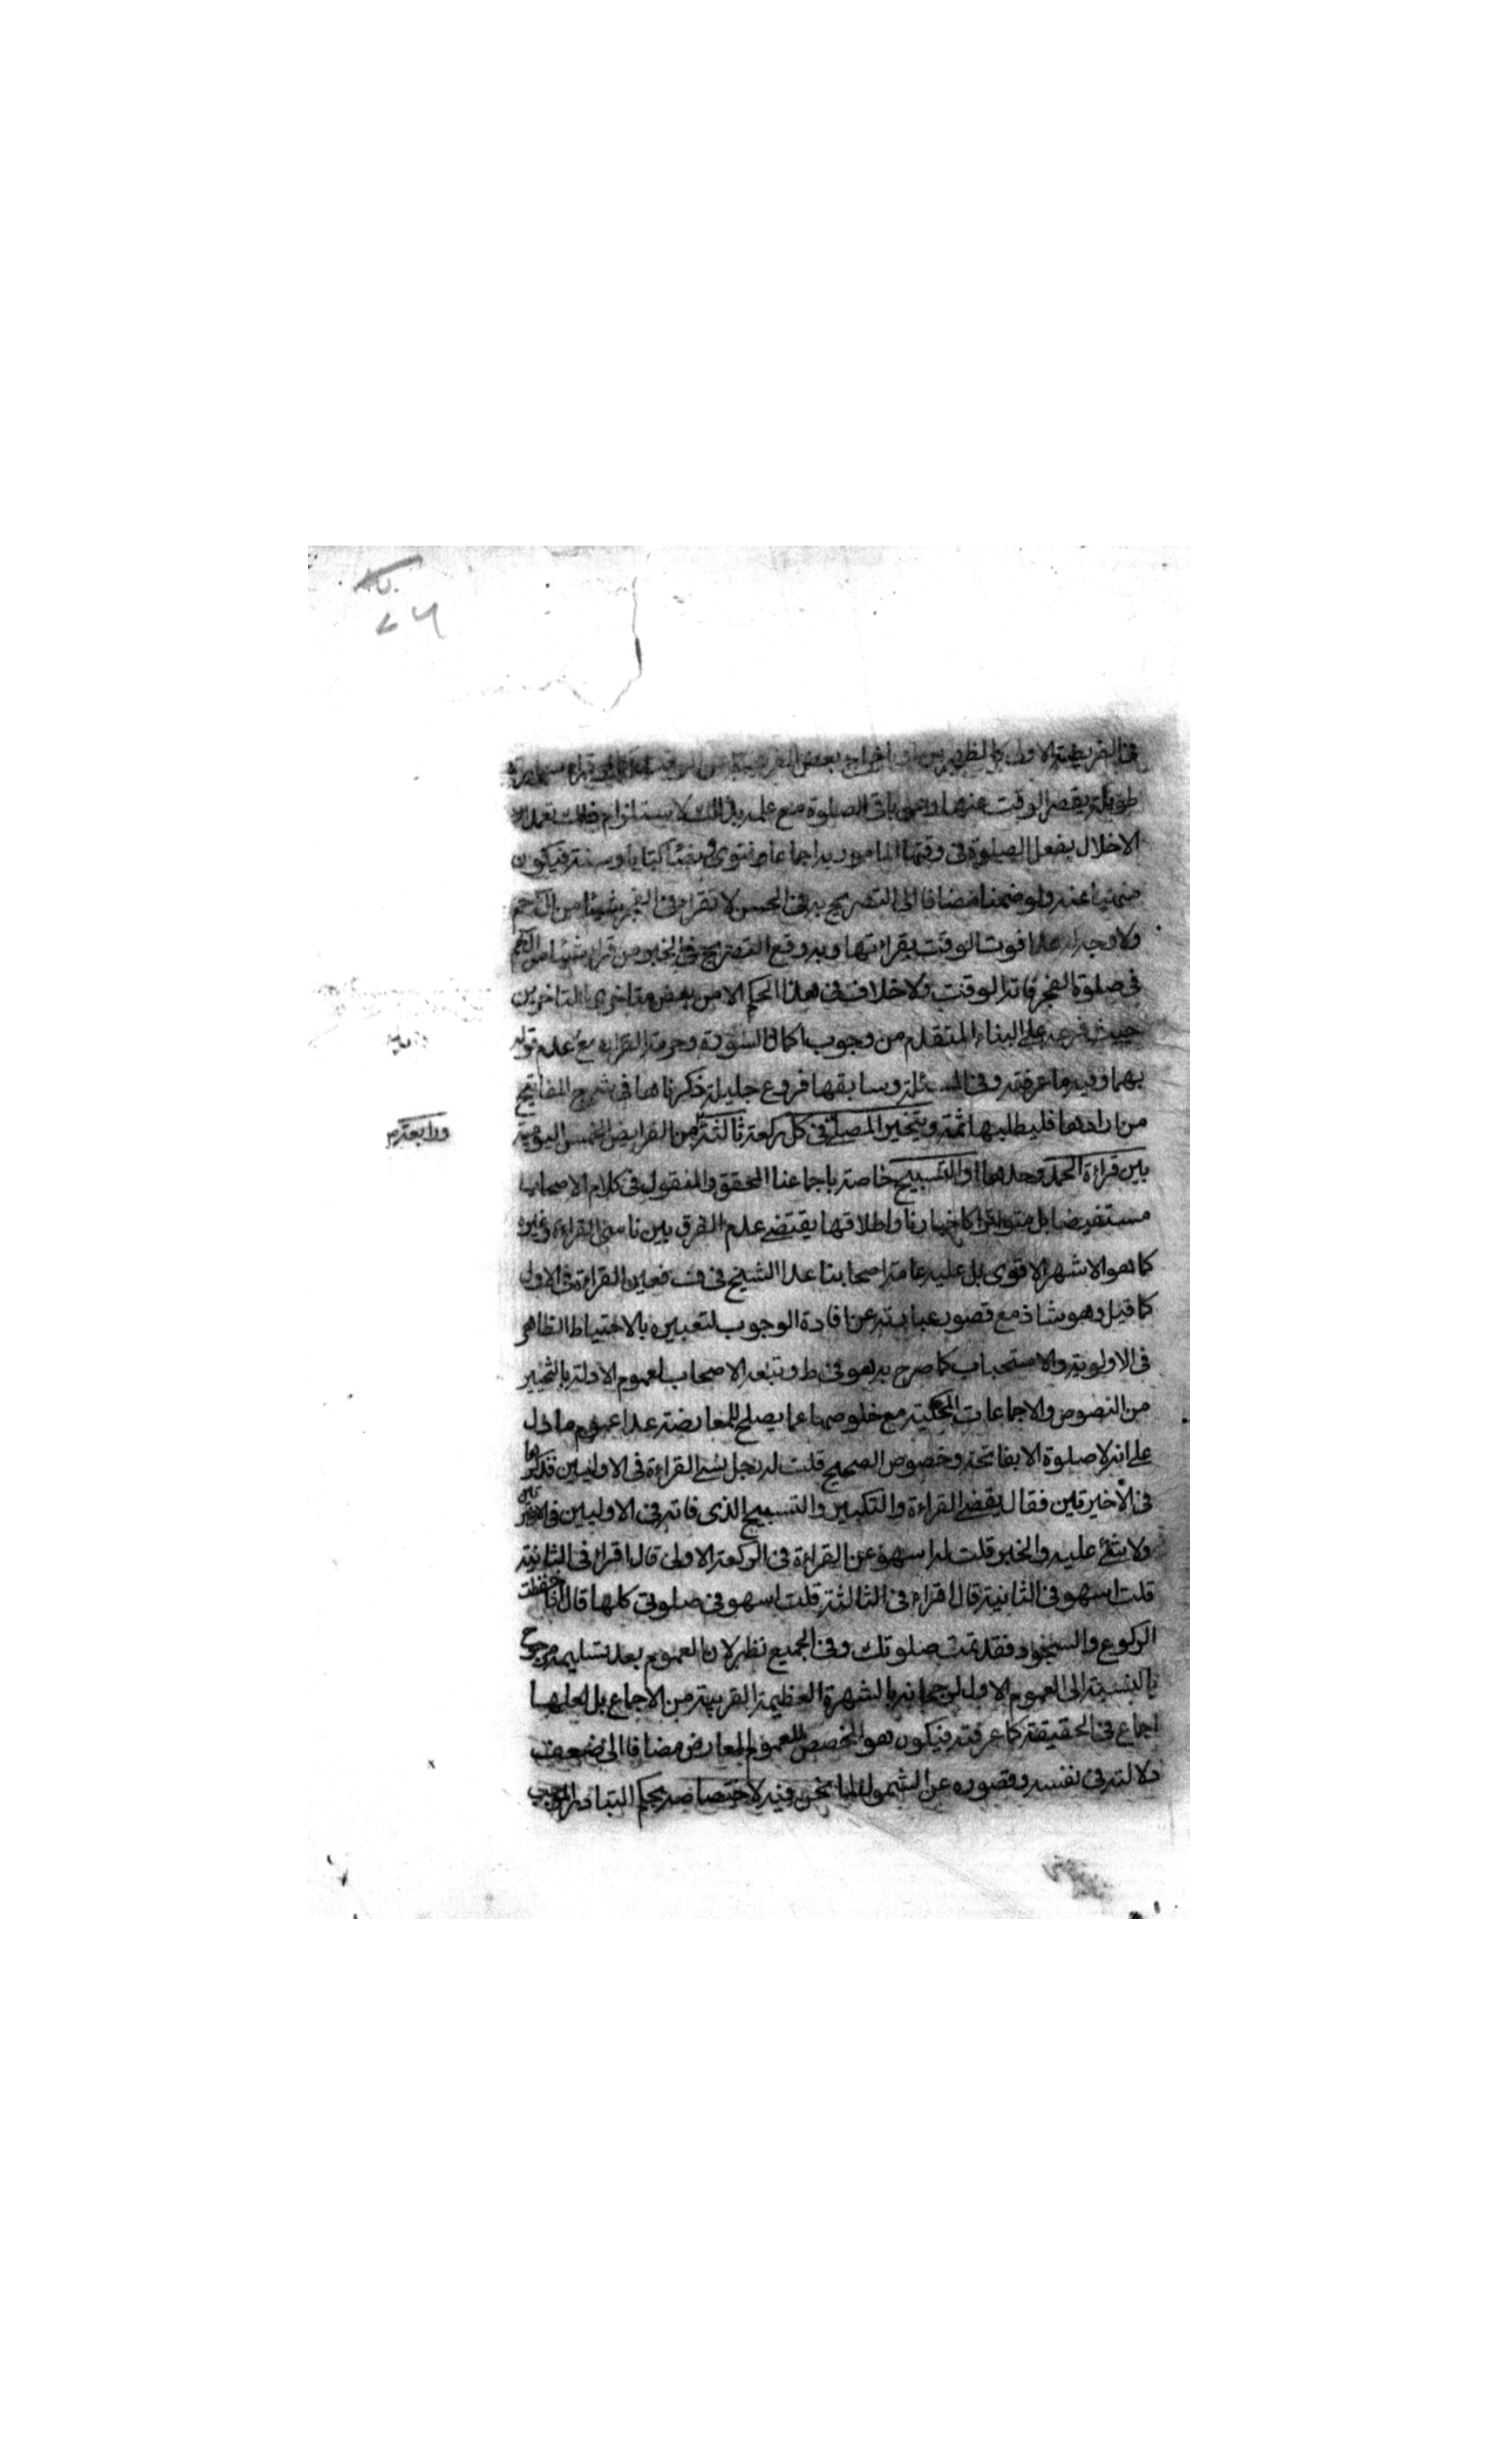 في الفريضة الاولى كالظهرين او باخراج بعض الفريضة عن الوقت
طويلة يقصر الوقت عنها وعن باقي الصلوة مع علمه بذلك لاستلزام ذلك تعمد
الاخلال بفعل الصلوة في وقتها المامور به اجماعا وفتوى ونصا كتابا وسنة فيكون
منهيا عنه ولو ضمنا مضافا الى التصريح به في الحسن لا تقرا في الفجر شيئا من ال حم
ولا وجه له عدا فوت الوقت بقراءتها وبه وقع التصريح في الخبر من قراء شيئا من ال حم
في صلوة الفجر فاته الوقت ولا خلاف في هذا الحكم الا من بعض متاخري المتاخرين
حيث فرعه على البناء المتقدم من وجوب اكمال السورة وحرمة القران مع عدم قوله
بهما وفيه ما عرفته وفي المسئلة وسابقها فروع جليلة ذكرناها في شرح المفاتيح
من ارادها فليطلبها ثمة ويتخير المصلي في كل ركعة ثالثة من الفرايض الخمس اليومية
ورابعة
بين قراءة الحمد وحدها او التسبيح خاصة باجماعنا المحقق والمنقول في كلام الاصحاب
مستفيضا بل متواترا كاخبارنا واطلاقها يقتضي عدم الفرق بين ناسي القراءة وغيره
كما هو الاشهر الاقوى بل عليه عامة اصحابنا عدا الشيخ في ف فعين القراءة في الاول
كما قيل وهو شاذ مع قصور عبارته عن افادة الوجوب لتعبيره بالاحتياط الظاهر
في الاولوية والاستحباب كما صرح به هو في ط وتبعه الاصحاب لعموم الادلة بالتخيير
من النصوص والاجماعات المحكية مع خلوصها عما يصلح للمعارضة عدا عموم ما دل
على انه لا صلوة الا بفاتحة وخصوص الصحيح قلت له رجل نسي القراءة في الاوليين فذكرها
في الاخيرتين فقال يقضي القراءة والتكبير والتسبيح الذي فاته في الاوليين في الاخيرتين
ولا شئ عليه والخبر قلت له اسهو عن القراءة في الركعة الاولى قال اقراء في الثانية
قلت اسهو في الثانية قال اقراء في الثالثة قلت اسهو في صلوتي كلها قال اذا حفظت
الركوع والسجود فقد تمت صلوتك وفي الجميع نظر لان العموم بعد تسليمه مرجوح
بالنسبة الى العموم الاول لرجحانه بالشهرة العظيمة القريبة من الاجماع بل لعلها
اجماع في الحقيقة كما عرفته فيكون هو المخصص للعموم المعارض مضافا الى ضعف
دلالته في نفسه وقصوره عن الشمول لما نحن فيه لاختصاصه بحكم التبادر الموجب